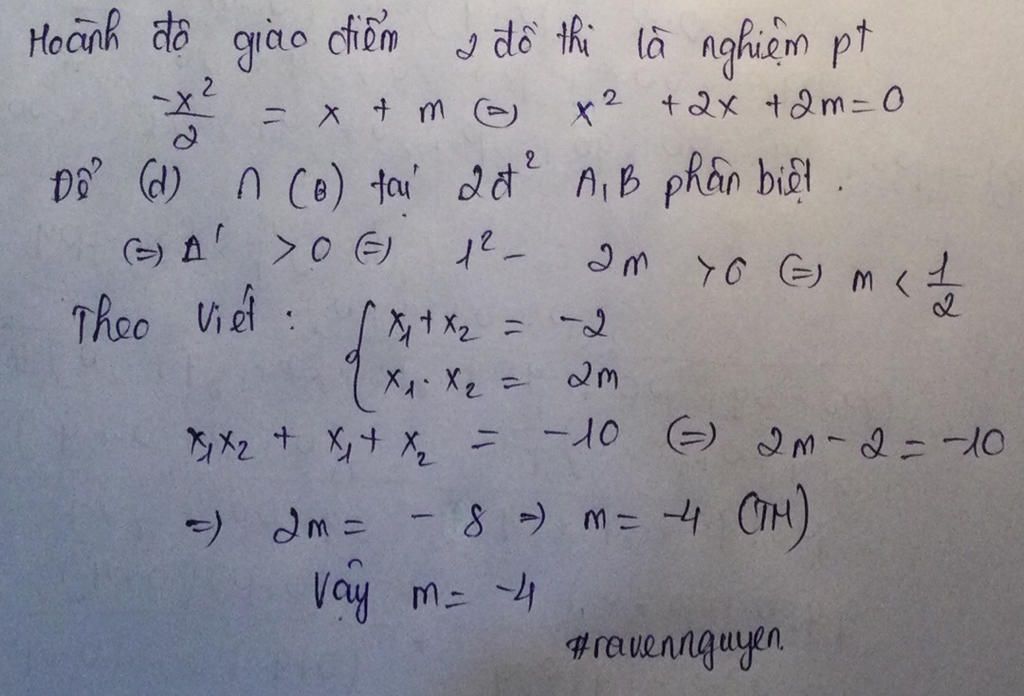 Hoành độ giao điểm 2 đồ thị là nghiệm pt
-x²/2 = x + m ⇔ x² + 2x + 2m = 0
Để (d) ∩ (P) tại 2đ² A, B phân biệt.
⇔ Δ' > 0 ⇔ 1² - 2m > 0 ⇔ m < 1/2
Theo Viét: { x₁ + x₂ = -2
x₁ . x₂ = 2m
x₁x₂ + x₁ + x₂ = -10 ⇔ 2m - 2 = -10
⇒ 2m = -8 ⇒ m = -4 (TM)
Vậy m = -4
#ravennguyen.